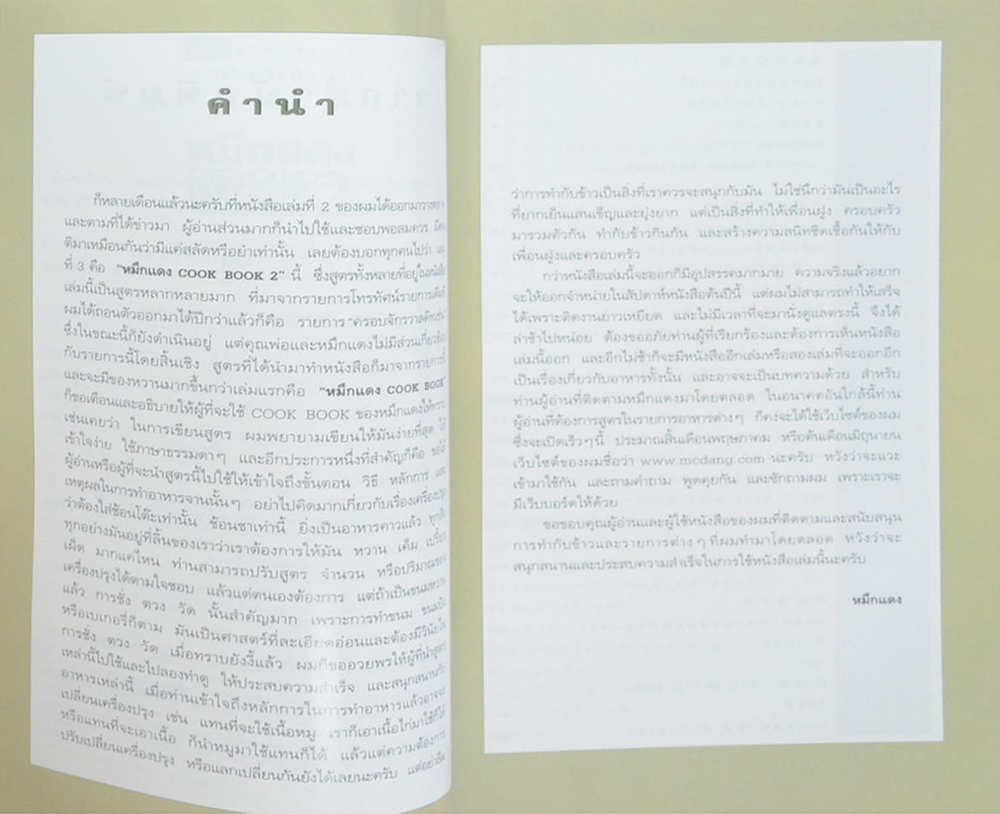 คำนำ
ก็หลายเดือนแล้วนะครับที่หนังสือเล่มที่ 2 ของผมได้ออกมาวาง
และตามที่ได้ข่าวมา ผู้อ่านส่วนมากก็นำไปใช้และชอบพอสมควร
ติมาเหมือนกันว่ามีแค่สลัดหรือยำเท่านั้น เลยต้องบอกทุกคนไปว่า
ที่ 3 คือ "หมึกแดง COOK BOOK 2" นี้ ซึ่งสูตรทั้งหลายที่อยู่ใน
เล่มนี้เป็นสูตรหลากหลายมาก ที่มาจากรายการโทรทัศน์รายการ
ผมได้ถอนตัวออกมาได้ปีกว่าแล้วก็คือ รายการ "ครอบจักรวาล
ซึ่งในขณะนี้ก็ยังดำเนินอยู่ แต่คุณพ่อและหมึกแดงไม่มีส่วนเกี่ยวข้อง
กับรายการนี้โดยสิ้นเชิง สูตรที่ได้นำมาทำหนังสือก็มาจากรายการ
และจะมีของหวานมากขึ้นกว่าเล่มแรกคือ "หมึกแดง COOK BOOK"
ก็ขอเตือนและอธิบายให้ผู้ที่จะใช้ COOK BOOK ของหมึกแดงให้ทราบ
เช่นเคยว่า ในการเขียนสูตร ผมพยายามเขียนให้มันง่ายที่สุด ให้
เข้าใจง่าย ใช้ภาษาธรรมดาๆ และอีกประการหนึ่งที่สำคัญก็คือ ขอให้
ผู้อ่านหรือผู้ที่จะนำสูตรนี้ไปใช้ให้เข้าใจถึงขั้นตอน วิธี หลักการ และ
เหตุผลในการทำอาหารจานนั้นๆ อย่าไปคิดมากเกี่ยวกับเรื่องเครื่องปรุง
ว่าต้องใส่ช้อนโต๊ะเท่านั้น ช้อนชาเท่านี้ ยิ่งเป็นอาหารคาวแล้ว ทุกสิ่ง
ทุกอย่างมันอยู่ที่ลิ้นของเราว่าเราต้องการให้มัน หวาน เค็ม เปรี้ยว
เผ็ด มากแค่ไหน ท่านสามารถปรับสูตร จำนวน หรือปริมาณของ
เครื่องปรุงได้ตามใจชอบ แล้วแต่ตนเองต้องการ แต่ถ้าเป็นขนมหวาน
แล้ว การชั่ง ตวง วัด นั้นสำคัญมาก เพราะการทำขนม ขนมปัง
หรือเบเกอรี่ก็ตาม มันเป็นศาสตร์ที่ละเอียดอ่อนและต้องมีวินัยใน
การชั่ง ตวง วัด เมื่อทราบยังงี้แล้ว ผมก็ขออวยพรให้ผู้ที่นำสูตร
เหล่านี้ไปใช้และไปลองทำดู ให้ประสบความสำเร็จ และสนุกสนานกับ
อาหารเหล่านี้ เมื่อท่านเข้าใจถึงหลักการในการทำอาหารแล้วอาจจะ
เปลี่ยนเครื่องปรุง เช่น แทนที่จะใช้เนื้อหมู เราก็เอาเนื้อไก่มาใช้ก็ได้
หรือแทนที่จะเอาเนื้อ ก็นำหมูมาใช้แทนก็ได้ แล้วแต่ความต้องการ
ปรับเปลี่ยนเครื่องปรุง หรือแลกเปลี่ยนกันยังได้เลยนะครับ แต่อย่าลืม
ว่าการทำกับข้าวเป็นสิ่งที่เราควรจะสนุกกับมัน ไม่ใช่นึกว่ามันเป็นอะไร
ที่ยากเย็นแสนเข็ญและยุ่งยาก แต่เป็นสิ่งที่ทำให้เพื่อนฝูง ครอบครัว
มารวมตัวกัน ทำกับข้าวกินกัน และสร้างความสนิทชิดเชื้อกันให้กับ
เพื่อนฝูงและครอบครัว
กว่าหนังสือเล่มนี้จะออกก็มีอุปสรรคมากมาย ความจริงแล้วอยาก
จะให้ออกจำหน่ายในสัปดาห์หนังสือต้นปีนี้ แต่ผมไม่สามารถทำให้เสร็จ
ได้เพราะติดงานยาวเหยียด และไม่มีเวลาที่จะมานั่งดูแลตรงนี้ จึงได้
ล่าช้าไปหน่อย ต้องขออภัยท่านผู้ที่เรียกร้องและต้องการเห็นหนังสือ
เล่มนี้ออก และอีกไม่ช้าก็จะมีหนังสืออีกเล่มหรือสองเล่มที่จะออกอีก
เป็นเรื่องเกี่ยวกับอาหารทั้งนั้น และอาจจะเป็นบทความด้วย สำหรับ
ท่านผู้อ่านที่ติดตามหมึกแดงมาโดยตลอด ในอนาคตอันใกล้นี้ท่าน
ผู้อ่านที่ต้องการสูตรในรายการอาหารต่างๆ ก็คงจะได้ใช้เว็บไซต์ของผม
ซึ่งจะเปิดเร็วๆนี้ ประมาณสิ้นเดือนพฤษภาคม หรือต้นเดือนมิถุนายน
เว็บไซต์ของผมชื่อว่า www.mcdang.com นะครับ หวังว่าจะแวะ
เข้ามาใช้กัน และถามคำถาม พูดคุยกัน และซักถามผม เพราะเราจะ
มีเว็บบอร์ดให้ด้วย
ขอรอบคุณผู้อ่านและผู้ใช้หนังสือของผมที่ติดตามและสนับสนุน
การทำกับข้าวและรายการต่างๆ ที่ผมทำมาโดยตลอด หวังว่าจะ
สนุกสนานและประสบความสำเร็จในการใช้หนังสือเล่มนี้นะครับ
หมึกแดง